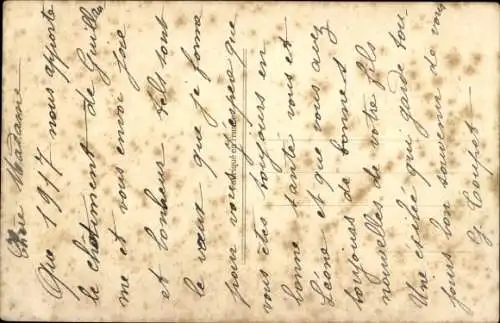 Chère Madame
Que 1917 nous apporte
le chatiment de Guillau
me et vous envoi joie
et bonheur tells sont
le vœux que je forme
pour vous j'espère que
vous êtes toujours en
bonne santé vous et
Léone et que vous avez
toujours de bonnes
nouvelles de votre fils
Une exilée qui garde tou-
jours bon souvenir de vous
Y Coupet